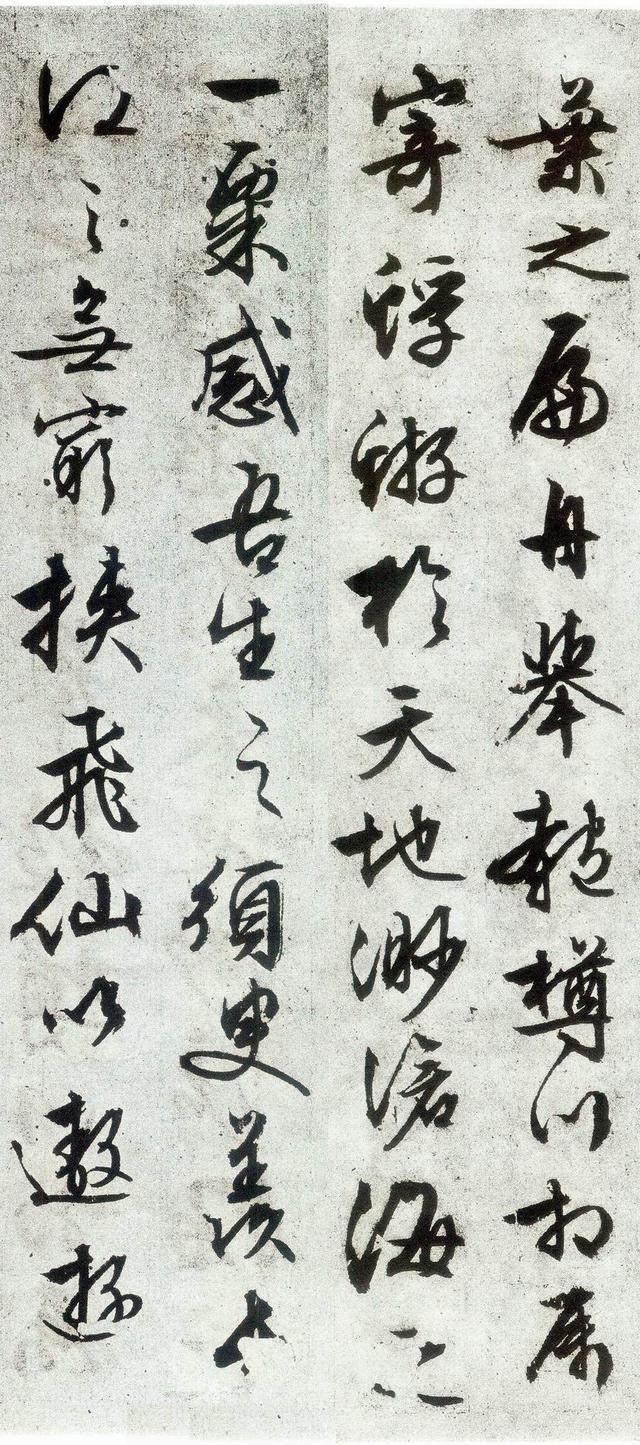 葉之扁舟舉匏樽以相属
寄蜉蝣於天地渺滄海之
一粟感吾生之須臾羨長
江之無窮挾飛仙以遨遊